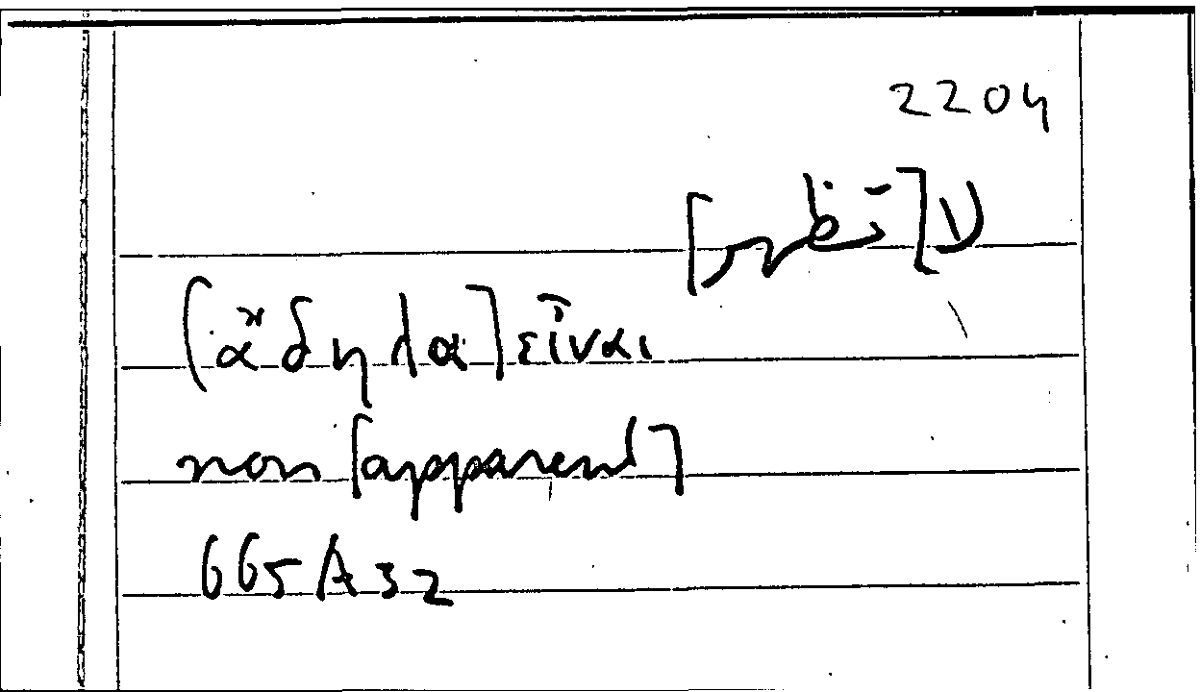 2204
لا [تظهر]
[ἄδηλα] εἶναι
non [apparent]
665A32